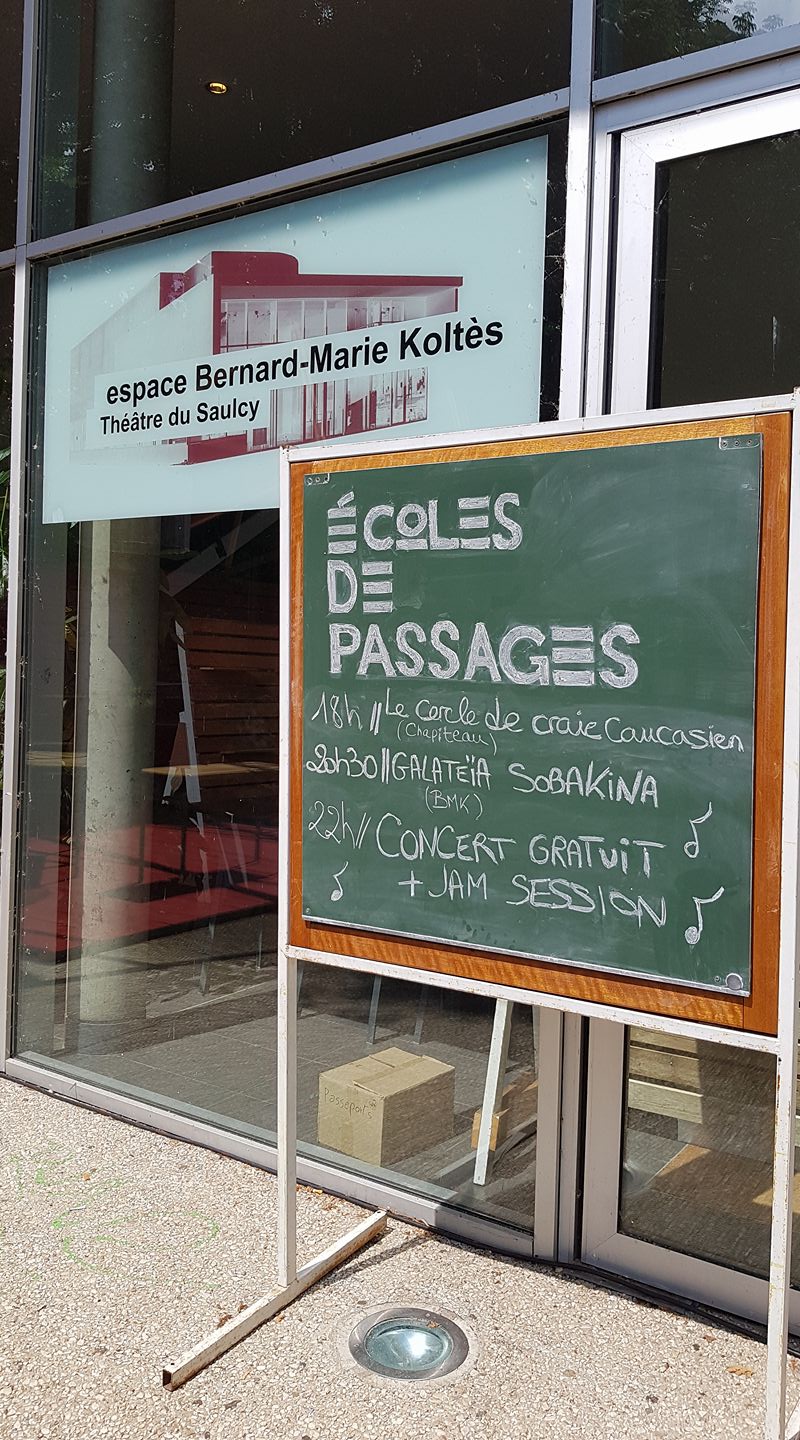 espace Bernard-Marie Koltès
Théâtre du Saulcy
ÉCOLES
DE
PASSAGES
18h // Le cercle de craie Caucasien
(Chapiteau)
20h30 // GALATEÏA SOBAKINA
(BMK)
22h // CONCERT GRATUIT
+ JAM SESSION
Passeports